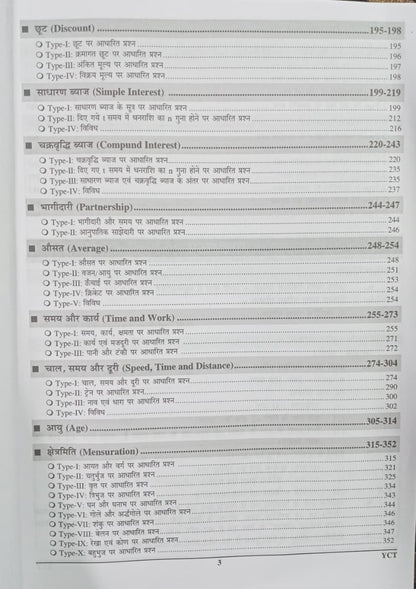 ■ छूट (Discount) 195-198
Type-I: छूट पर आधारित प्रश्न 195
Type-II: क्रमागत छूट पर आधारित प्रश्न 196
Type-III: अंकित मूल्य पर आधारित प्रश्न 197
Type-IV: विक्रय मूल्य पर आधारित प्रश्न 198
■ साधारण ब्याज (Simple Interest) 199-219
Type-I: साधारण ब्याज के सूत्र पर आधारित प्रश्न 199
Type-II: दिए गये t समय में धनराशि का n गुना होने पर आधारित प्रश्न 212
Type-IV: विविध 216
■ चक्रवृद्धि ब्याज (Compund Interest) 220-243
Type-I: चक्रवृद्धि ब्याज पर आधारित प्रश्न 220
Type-II: दिए गए t समय में धनराशि का n गुना होने पर आधारित प्रश्न 235
Type-III: साधारण ब्याज एवं चक्रवृद्धि ब्याज के अंतर पर आधारित प्रश्न 235
Type-IV: विविध 237
■ भागीदारी (Partnership) 244-247
Type-I: भागीदारी और समय पर आधारित प्रश्न 244
Type-II: आनुपातिक साझेदारी पर आधारित प्रश्न 246
■ औसत (Average) 248-254
Type-I: औसत पर आधारित प्रश्न 248
Type-II: वजन/आयु पर आधारित प्रश्न 251
Type-III: ऊँचाई पर आधारित प्रश्न 253
Type-IV: क्रिकेट पर आधारित प्रश्न 254
Type-V: विविध 254
■ समय और कार्य (Time and Work) 255-273
Type-I: समय, कार्य, क्षमता पर आधारित प्रश्न 255
Type-II: कार्य एवं मजदूरी पर आधारित प्रश्न 271
Type-III: पानी और टंकी पर आधारित प्रश्न 272
■ चाल, समय और दूरी (Speed, Time and Distance) 274-304
Type-I: चाल, समय और दूरी पर आधारित प्रश्न 274
Type-II: ट्रेन पर आधारित प्रश्न 290
Type-III: नाव एवं धारा पर आधारित प्रश्न 300
Type-IV: विविध 302
■ आयु (Age) 305-314
■ क्षेत्रमिति (Mensuration) 315-352
Type-I: आयत और वर्ग पर आधारित प्रश्न 315
Type-II: चतुर्भुज पर आधारित प्रश्न 321
Type-III: वृत्त पर आधारित प्रश्न 325
Type-IV: त्रिभुज पर आधारित प्रश्न 334
Type-V: घन और घनाभ पर आधारित प्रश्न 343
Type-VI: गोले और अर्द्धगोले पर आधारित प्रश्न 344
Type-VII: शंकु पर आधारित प्रश्न 346
Type-VIII: बेलन पर आधारित प्रश्न 346
Type-IX: रेखा एवं कोण पर आधारित प्रश्न 347
Type-X: बहुभुज पर आधारित प्रश्न 352
3 YCT